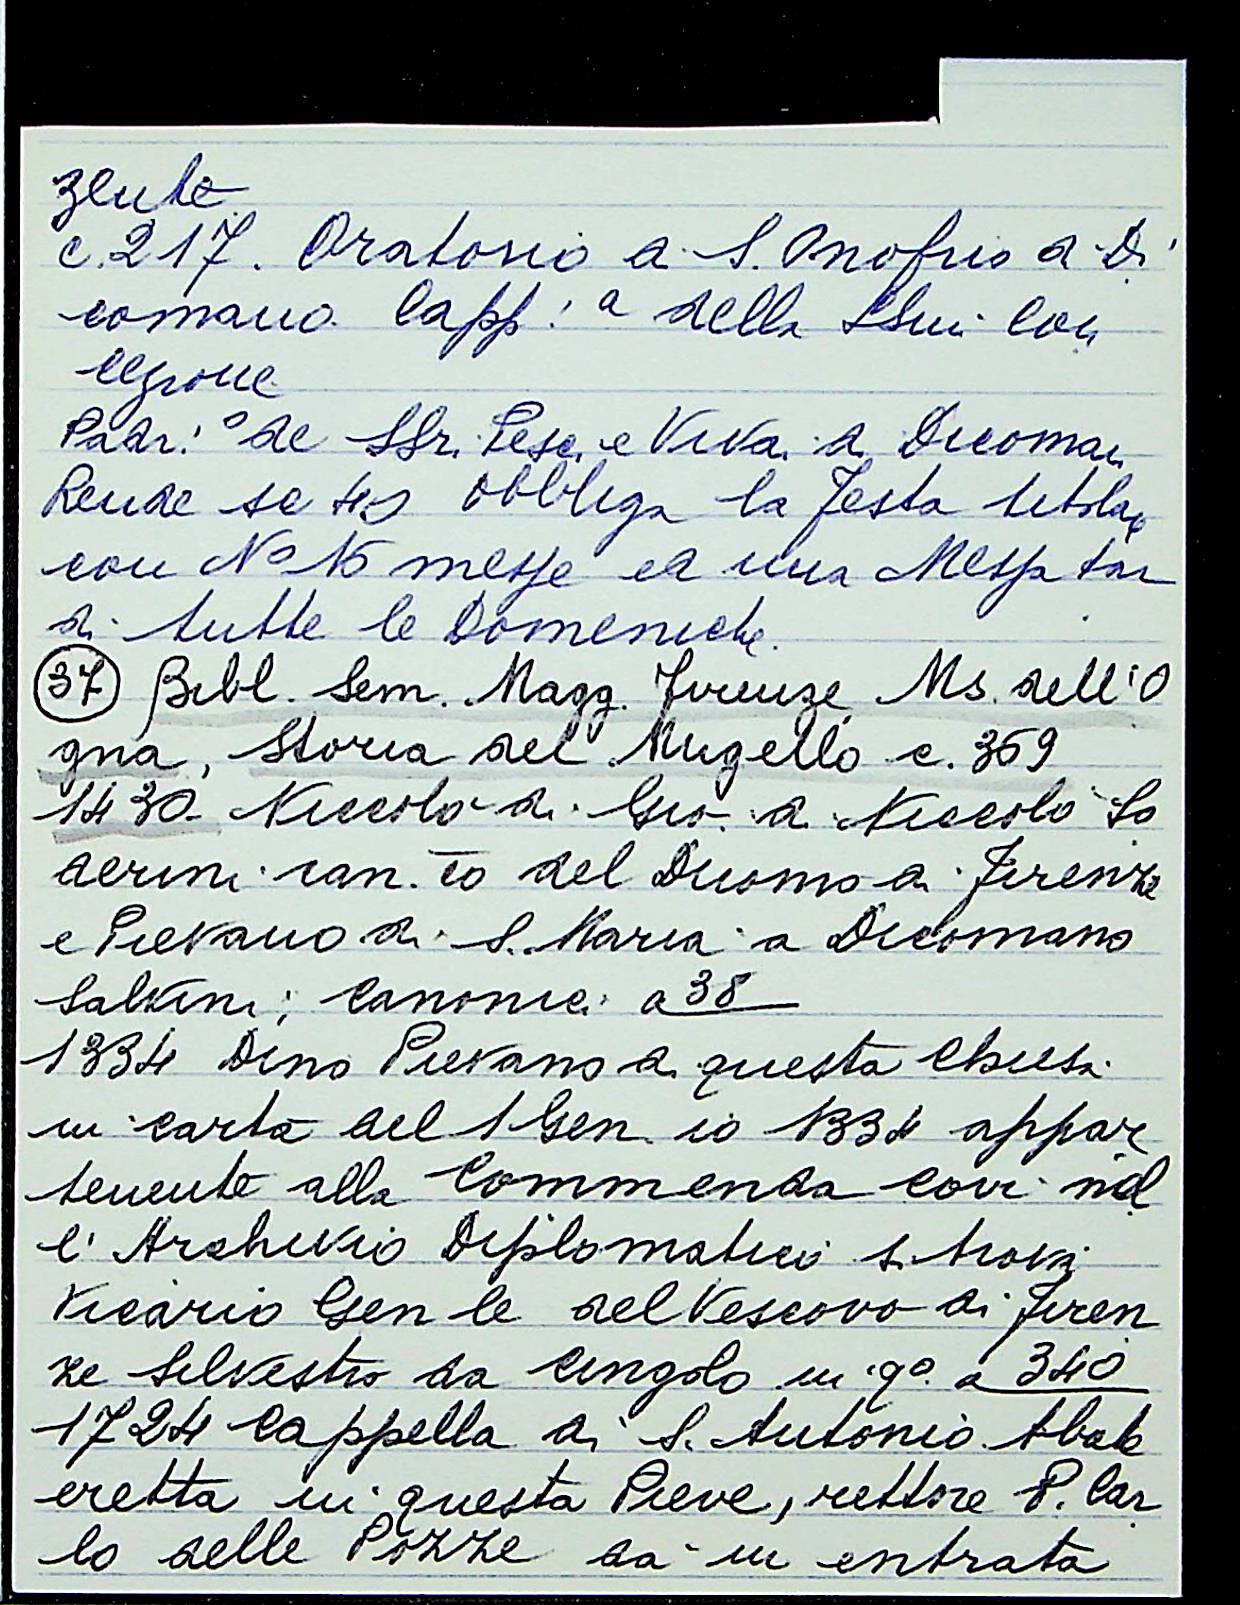 zente
c. 217. Oratorio a S. Onofrio a Di
comano. Capp:a della SSmi Con
cezione
Padr:o de SSr. Pesc. e Viva. a Dicoman
Rende sc 40 obbliga la festa titolar
con N° 16 messe ed una Messa tar
di tutte le Domeniche.
(37) Bibl. Sem. Magg. Firenze, Ms. dell'O
gna, Storia del Mugello c. 369
1430 Niccolò di Gio. di Niccolò So
derini can.co del Duomo di Firenze
e Pievano di S. Maria a Dicomano
Salvini; Canonici a 38
1334 Dino Pievano di questa Chiesa
in carta del 1 Gen.io 1334 appar
tenente alla Commenda Covi nel
l'Archivio Diplomatico si trova
Vicario Gen le del Vescovo di Firen
ze Silvestro da Cingolo in qo. a 340
1724 Cappella di S. Antonio Abate
eretta in questa Pieve, rettore P. Car
lo delle Pozze da in entrata